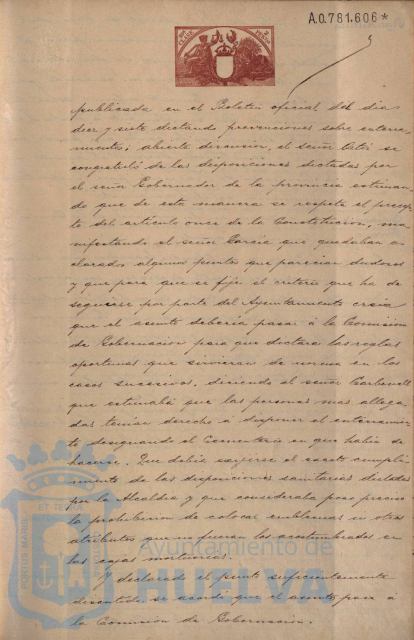 A.0.781.606*
publicada en el Boletin oficial del dia
diez y siete dictando prevenciones sobre enterra
mientos; abierta discusion, el señor se
congratuló de las disposiciones dictadas por
el señor Gobernador de la provincia estiman
do que de esta manera se respeta el precep
to del artículo once de la Constitucion, ma
nifestando el señor Garcia que quedaban a
clarados algunos puntos que parecian dudosos
y que para que se fije el criterio que ha de
seguirse por parte del Ayuntamiento creia
que el asunto deberia pasar á la Comision
de Gobernacion para que dictara las reglas
oportunas que sirvieran de norma en los
casos sucesivos, diciendo el señor
que estimaba que las personas mas allega
das tenian derecho á disponer el enterramien
to designando el Cementerio en que habia de
hacerse. Que debia exijirse el exacto cumpli
miento de las disposiciones sanitarias dictadas
por la Alcaldia y que consideraba poco preciso
la prohibicion de colocar emblemas ú otros
atributos que no fueran los acostumbrados en
las cajas mortuorias.
Y declarado el punto suficientemente
discutido se acordó que el asunto pase á
la Comision de Gobernacion.
ET TERRA
PORTUS MARIS
Ayuntamiento de
HUELVA